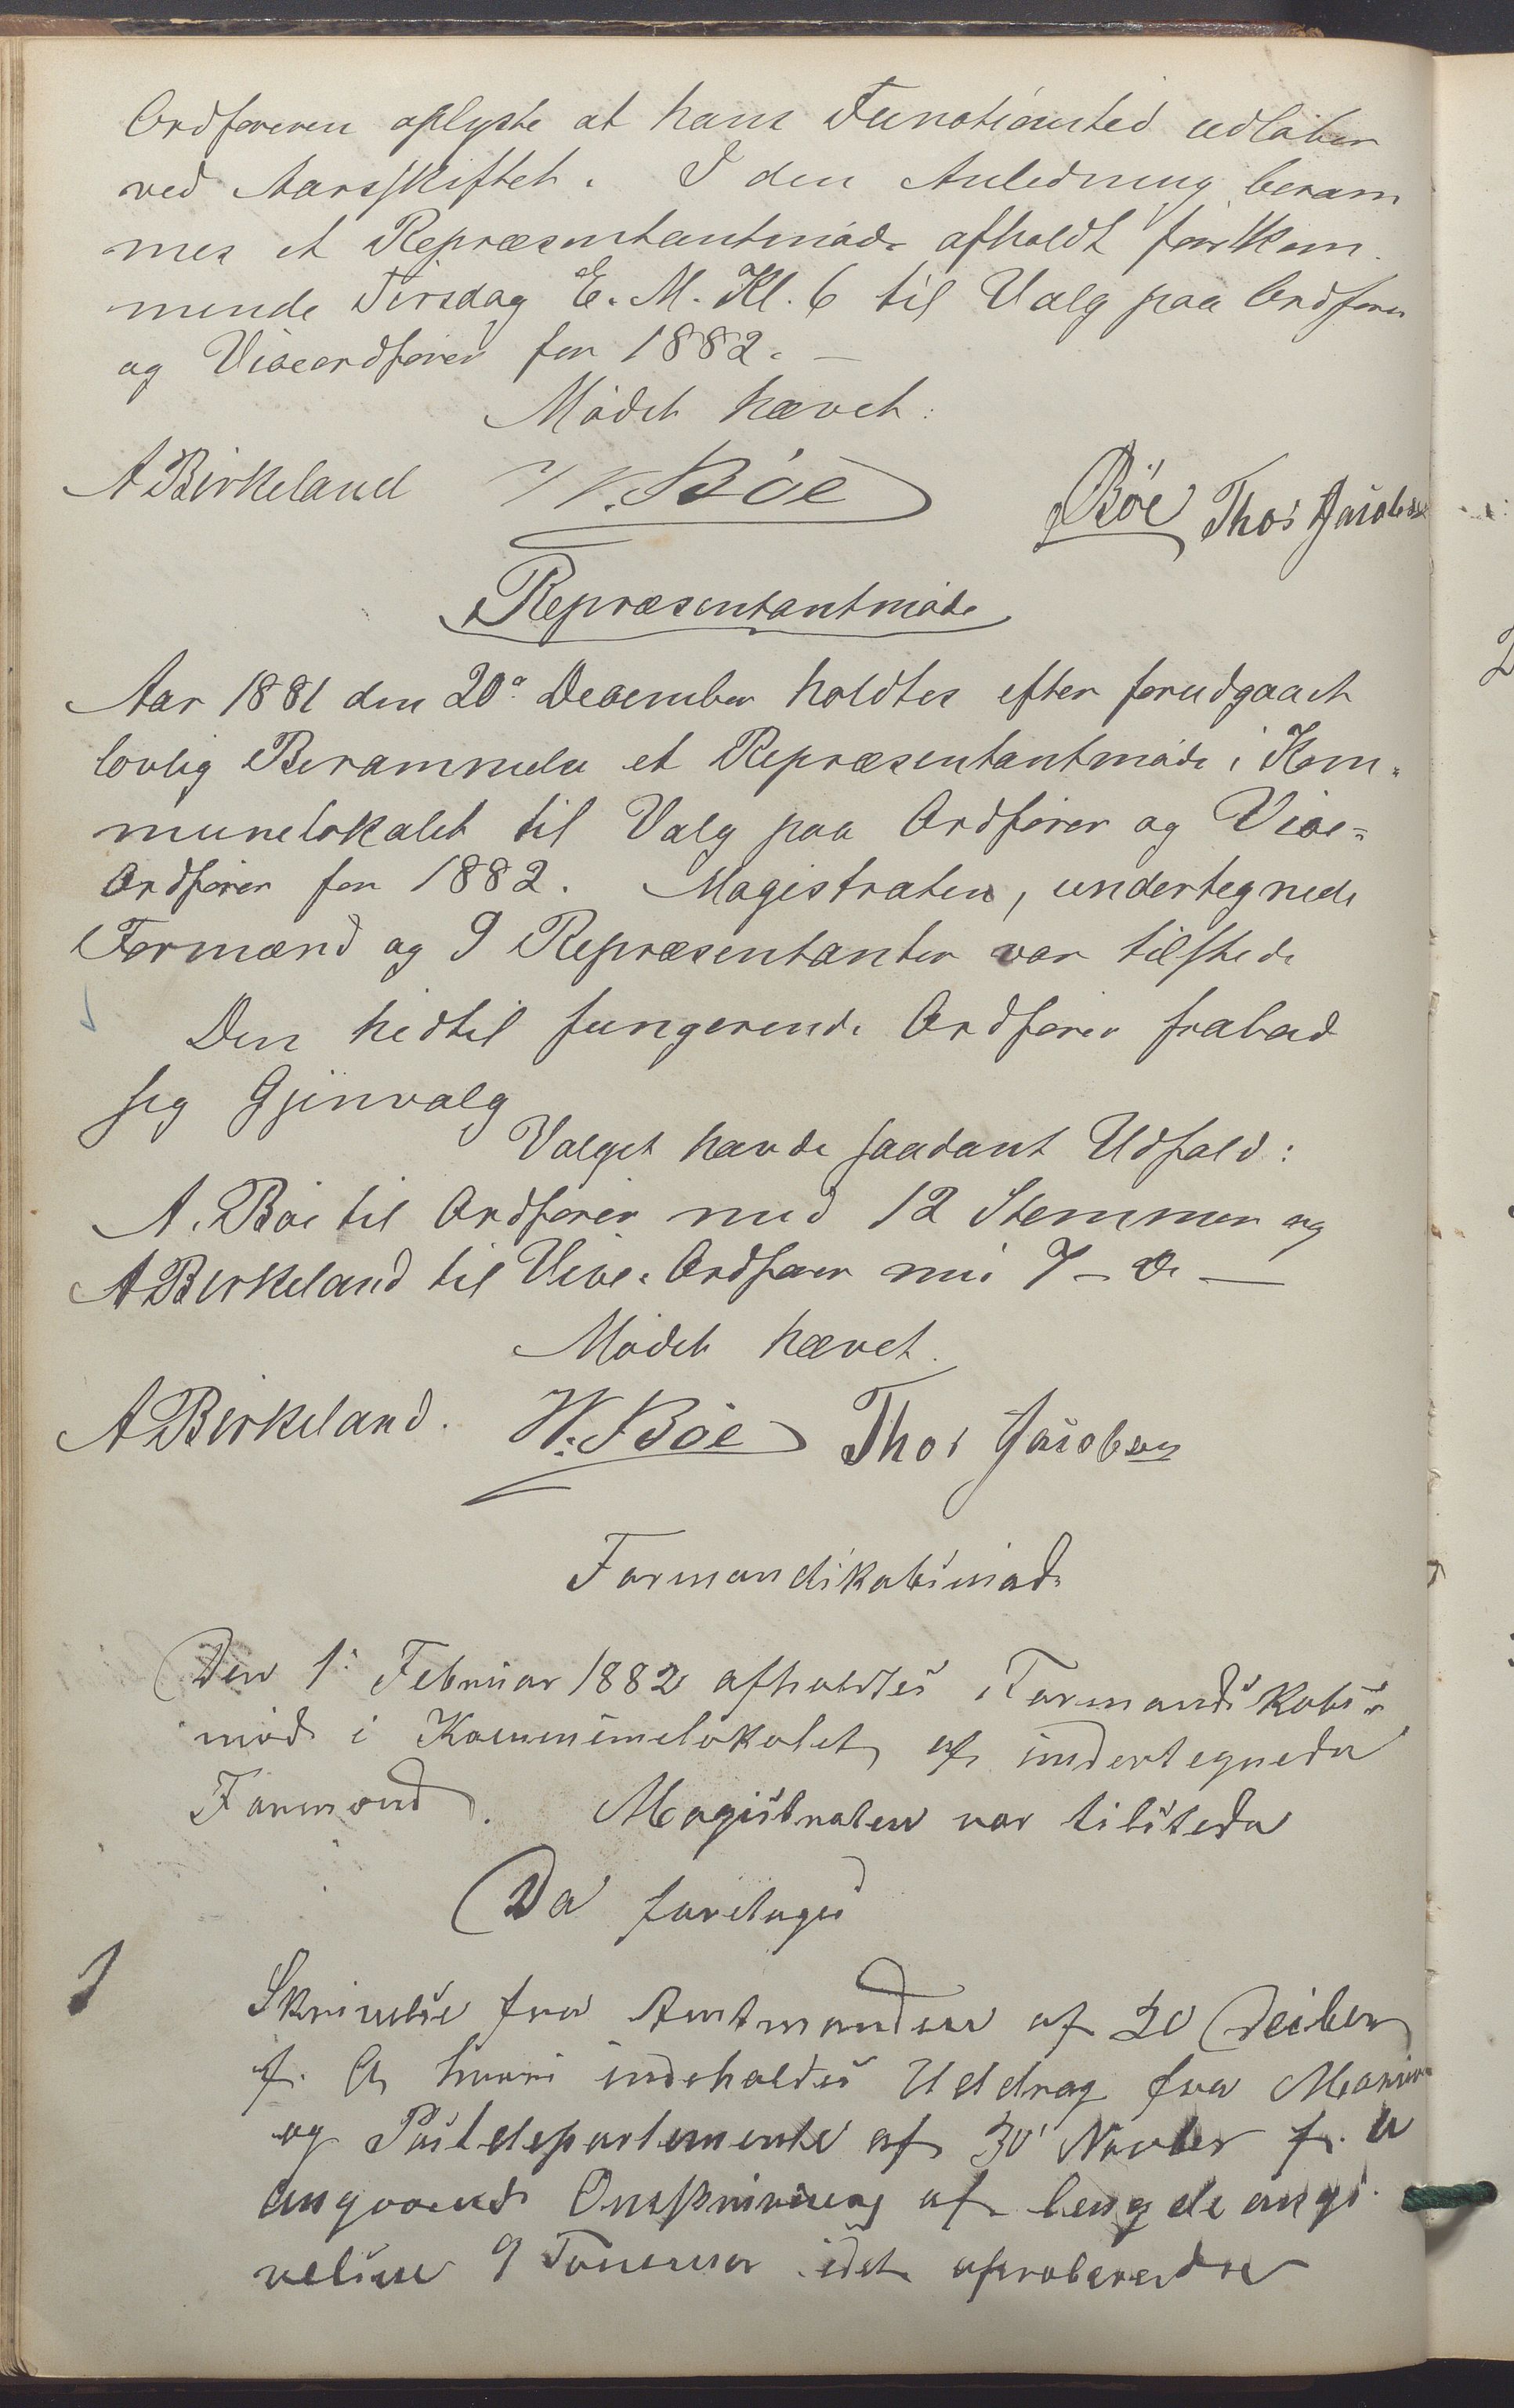 Ordføreren oplyste at hans Functionstid udløber
ved Aarsskiftet. I den Anledning beram
mes et Repræsentantmøde afholdt førstkom-
mende Tirsdag E. M. Kl. 6 til Valg paa Ordfører
og Viceordfører for 1882. –
Mødet hævet:
A Birkeland W. Bøe Bøe Thos Jacobsen
Repræsentantmøde
Aar 1881 den 20de December holdtes efter forudgaaet
lovlig Berammelse et Repræsentantmøde i Kom-
munelokalet til Valg paa Ordfører og Vice-
Ordfører for 1882. Magistraten, undertegnede
Formænd og 9 Repræsentanter var tilstede
Den hidtil fungerende Ordfører frabad
sig Gjenvalg
Valget havde saadant Udfald:
A. Bøe til Ordfører med 12 Stemmer og
A Birkeland til Vice-Ordfører med 7 – do –
Mødet hævet.
A Birkeland. W. Bøe Thos Jacobsen
Formandskabsmøde
Den 1. Februar 1882 afholdtes Formandskabs-
møde i Kommunelokalet af undertegnede
Formænd. Magistraten var tilstede
Da foretoges
1 Skrivelse fra Amtmanden af 20 Decber
f. A hvori indeholdes Uddrag fra Marine
og Postdepartementet af 30 Novber f. A
angaaende Omskrivning af Længdeangi-
velser 9 Tommer idet